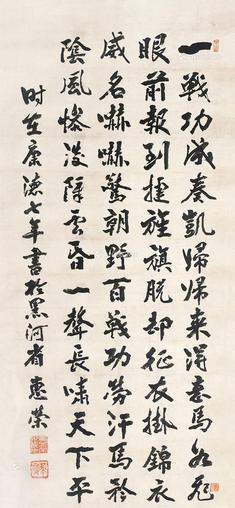 一戰功成奏凱歸歸來得意馬如飛
眼前報到捷旌旗脱却征衣掛錦衣
威名嚇嚇驚朝野百戰功勞汗馬於
陰風慘淡陣雲昏一聲長嘯天下平
時在康德七年書於黑河省惠榮